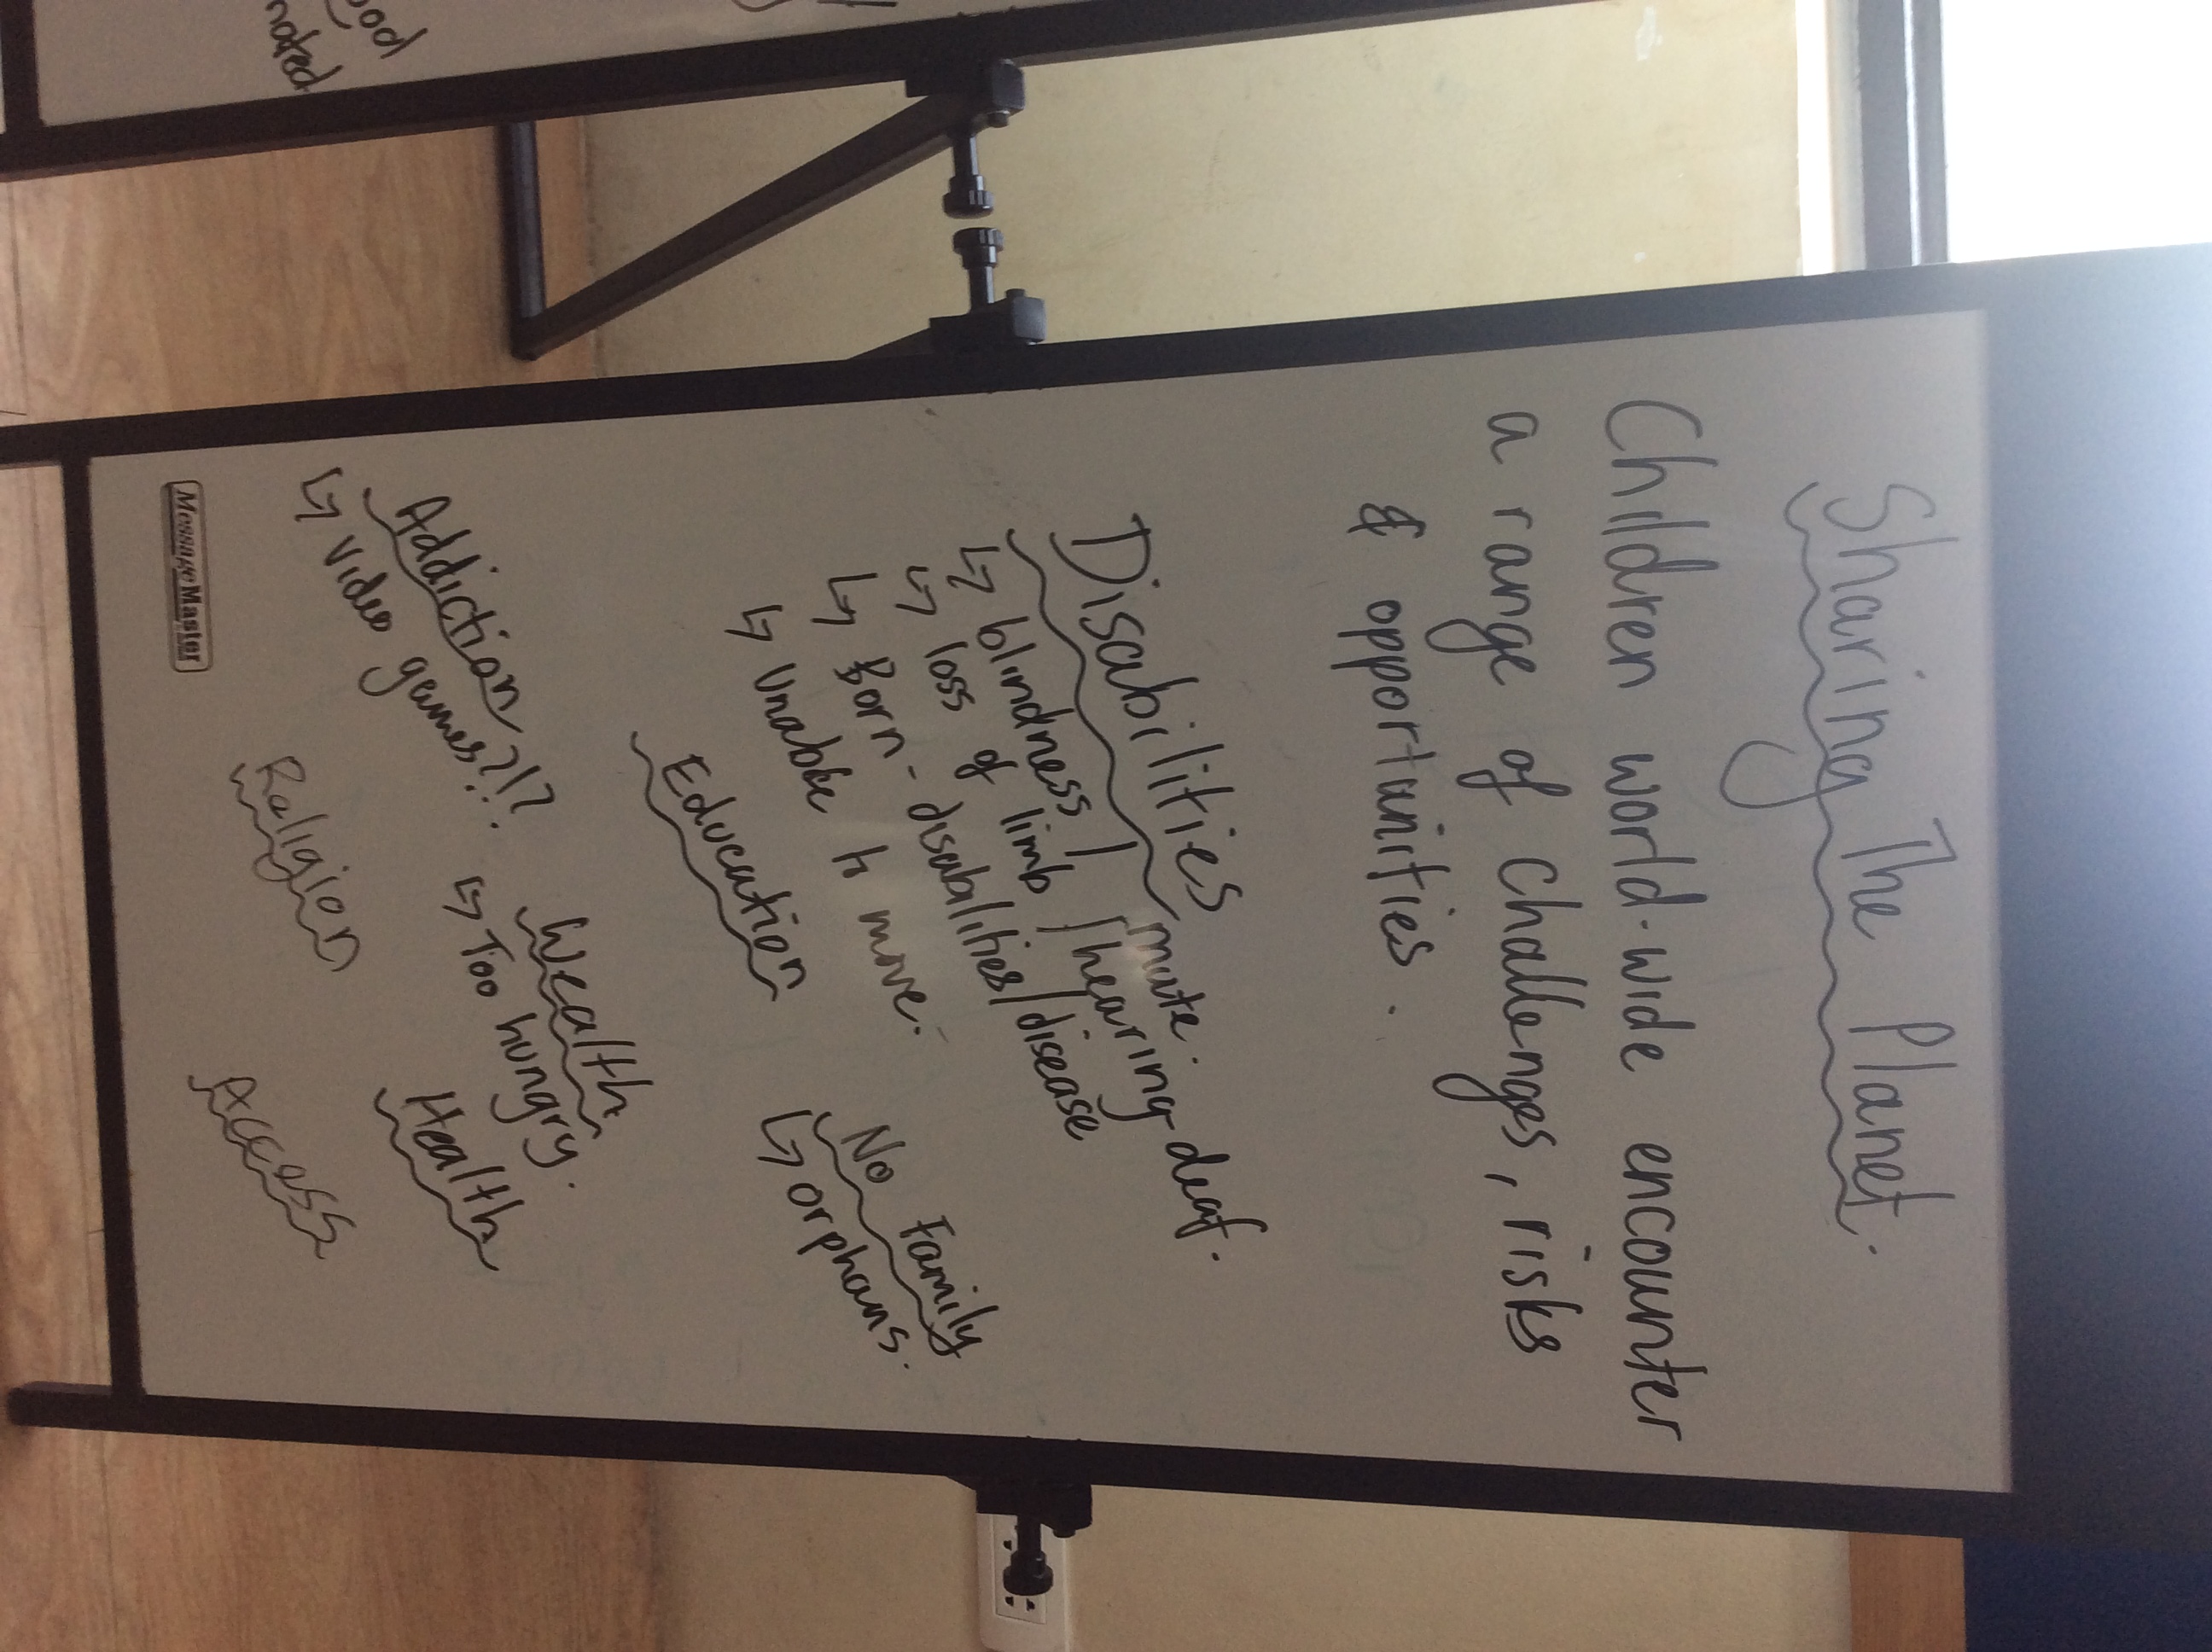 Sharing The Planet.
Children world-wide encounter
a range of Challenges, risks
& opportunities.
Disabilities
↳ blindness / mute.
↳ loss of limb / hearing-deaf.
↳ Born-disabilities/disease
↳ Unable to move.
No Family
↳ orphans.
Education
Wealth
↳ Too hungry.
Health
Addiction
↳ Video games?!?
Religion
Access
MessageMaster
ood
nated